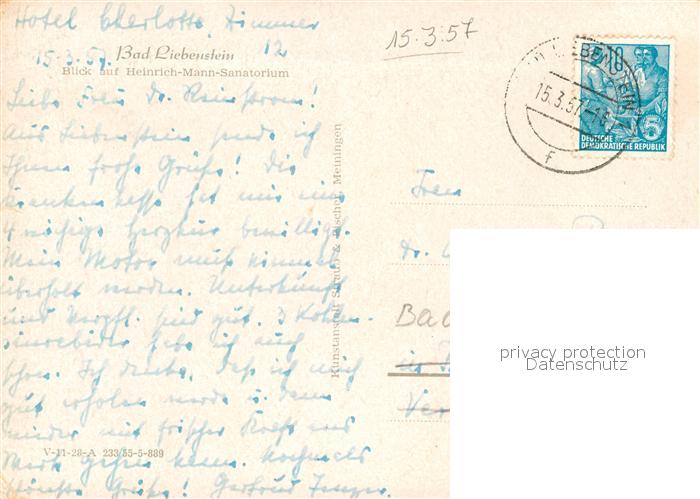 Hotel Charlotte, Zimmer
15.3.57. 12
Bad Liebenstein
Blick auf Heinrich-Mann-Sanatorium
Liebe Frau Dr.
Aus Liebenstein sende ich
Ihnen frohe Grüße! Die
Krankenkasse hat mir eine
4 wöchige Herzkur bewilligt.
Mein Motor muß einmal
überholt werden. Unterkunft
und Verpfl. sind gut. 3 Kohlen-
säurebäder habe ich auch
schon. Ich denke, daß ich mich
gut erholen werde u. dann
wieder mit frischer Kraft ans
Werk gehen kann. Nochmals
Grüße! Gertrud
V-11-28-A 233/55-5-889
Kunstanstalt Straub & Fischer, Meiningen
15.3.57
15.3.57
f
10
5
DEUTSCHE
DEMOKRATISCHE REPUBLIK
Frau
Dr.
Bad
privacy protection
Datenschutz